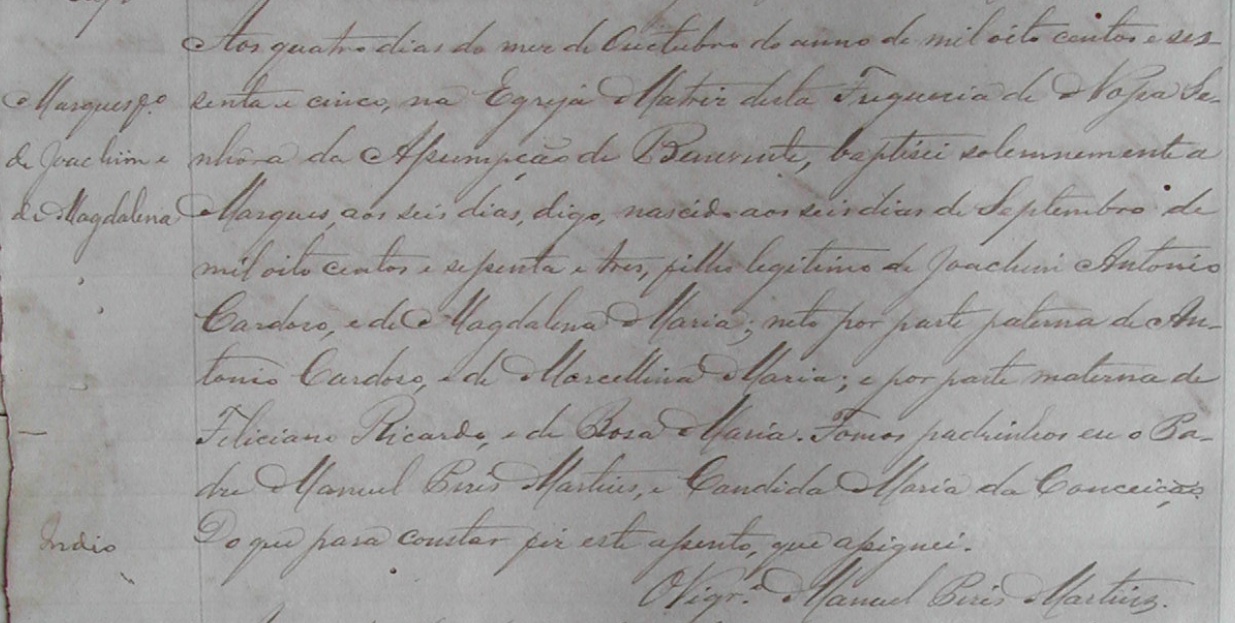 Aos quatro dias do mez de Outubro do anno de mil oito centos e ses-
Marques fº
senta e cinco, na Egreja Matriz desta Freguezia de Nossa Se-
de Joachim e
nhora da Assumpção de Benevente, baptisei solemnemente a
de Magdalena
Marques, aos seis dias, digo, nascido aos seis dias de Septembro de
mil oito centos e sessenta e tres, filho legitimo de Joachim Antonio
Cardoso, e de Magdalena Maria; neto por parte paterna de An-
tonio Cardoso, e de Marcellina Maria; e por parte materna de
Feliciano Ricardo, e de Rosa Maria. Fomos padrinhos eu o Pa-
dre Manuel Pires Martins, e Candida Maria da Conceição.
Indio
Do que para constar fiz este assento, que assignei.
O Vigrº Manuel Pires Martins.